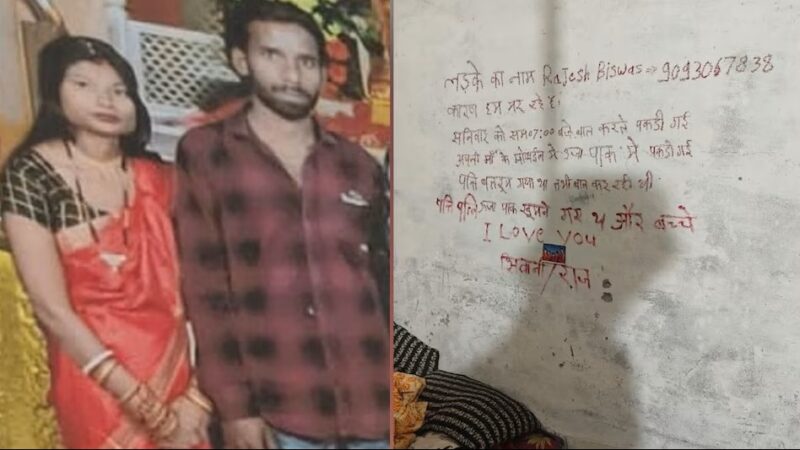 लड़के का नाम Rajesh Biswas => 9093067838
कारण हम मर रहे हैं।
शनिवार को समय 07:00 बजे बात करते पकड़ी गई
अपनी माँ के मोबाईल से ऊर्जा पार्क में पकड़ी गई
पति बाथरूम गया था तभी बात कर रही थी
पति पत्नि ऊर्जा पार्क घुमने गए थे और बच्चे
I Love You
शिवानी/राज